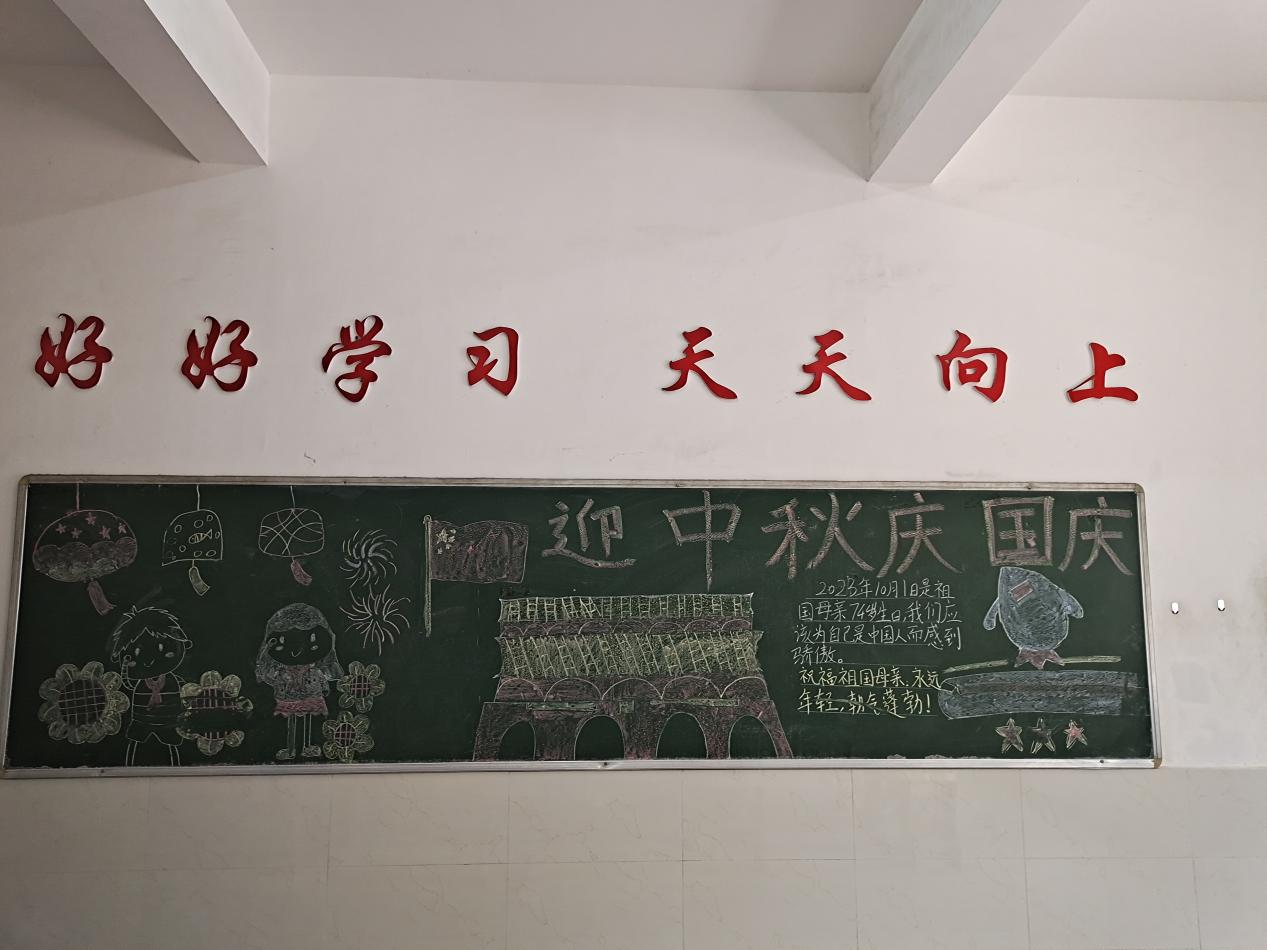 好好学习 天天向上
迎中秋庆国庆
2023年10月1日是祖
国母亲74岁生日,我们应
该为自己是中国人而感到
骄傲。
祝福祖国母亲:永远
年轻,朝气蓬勃!